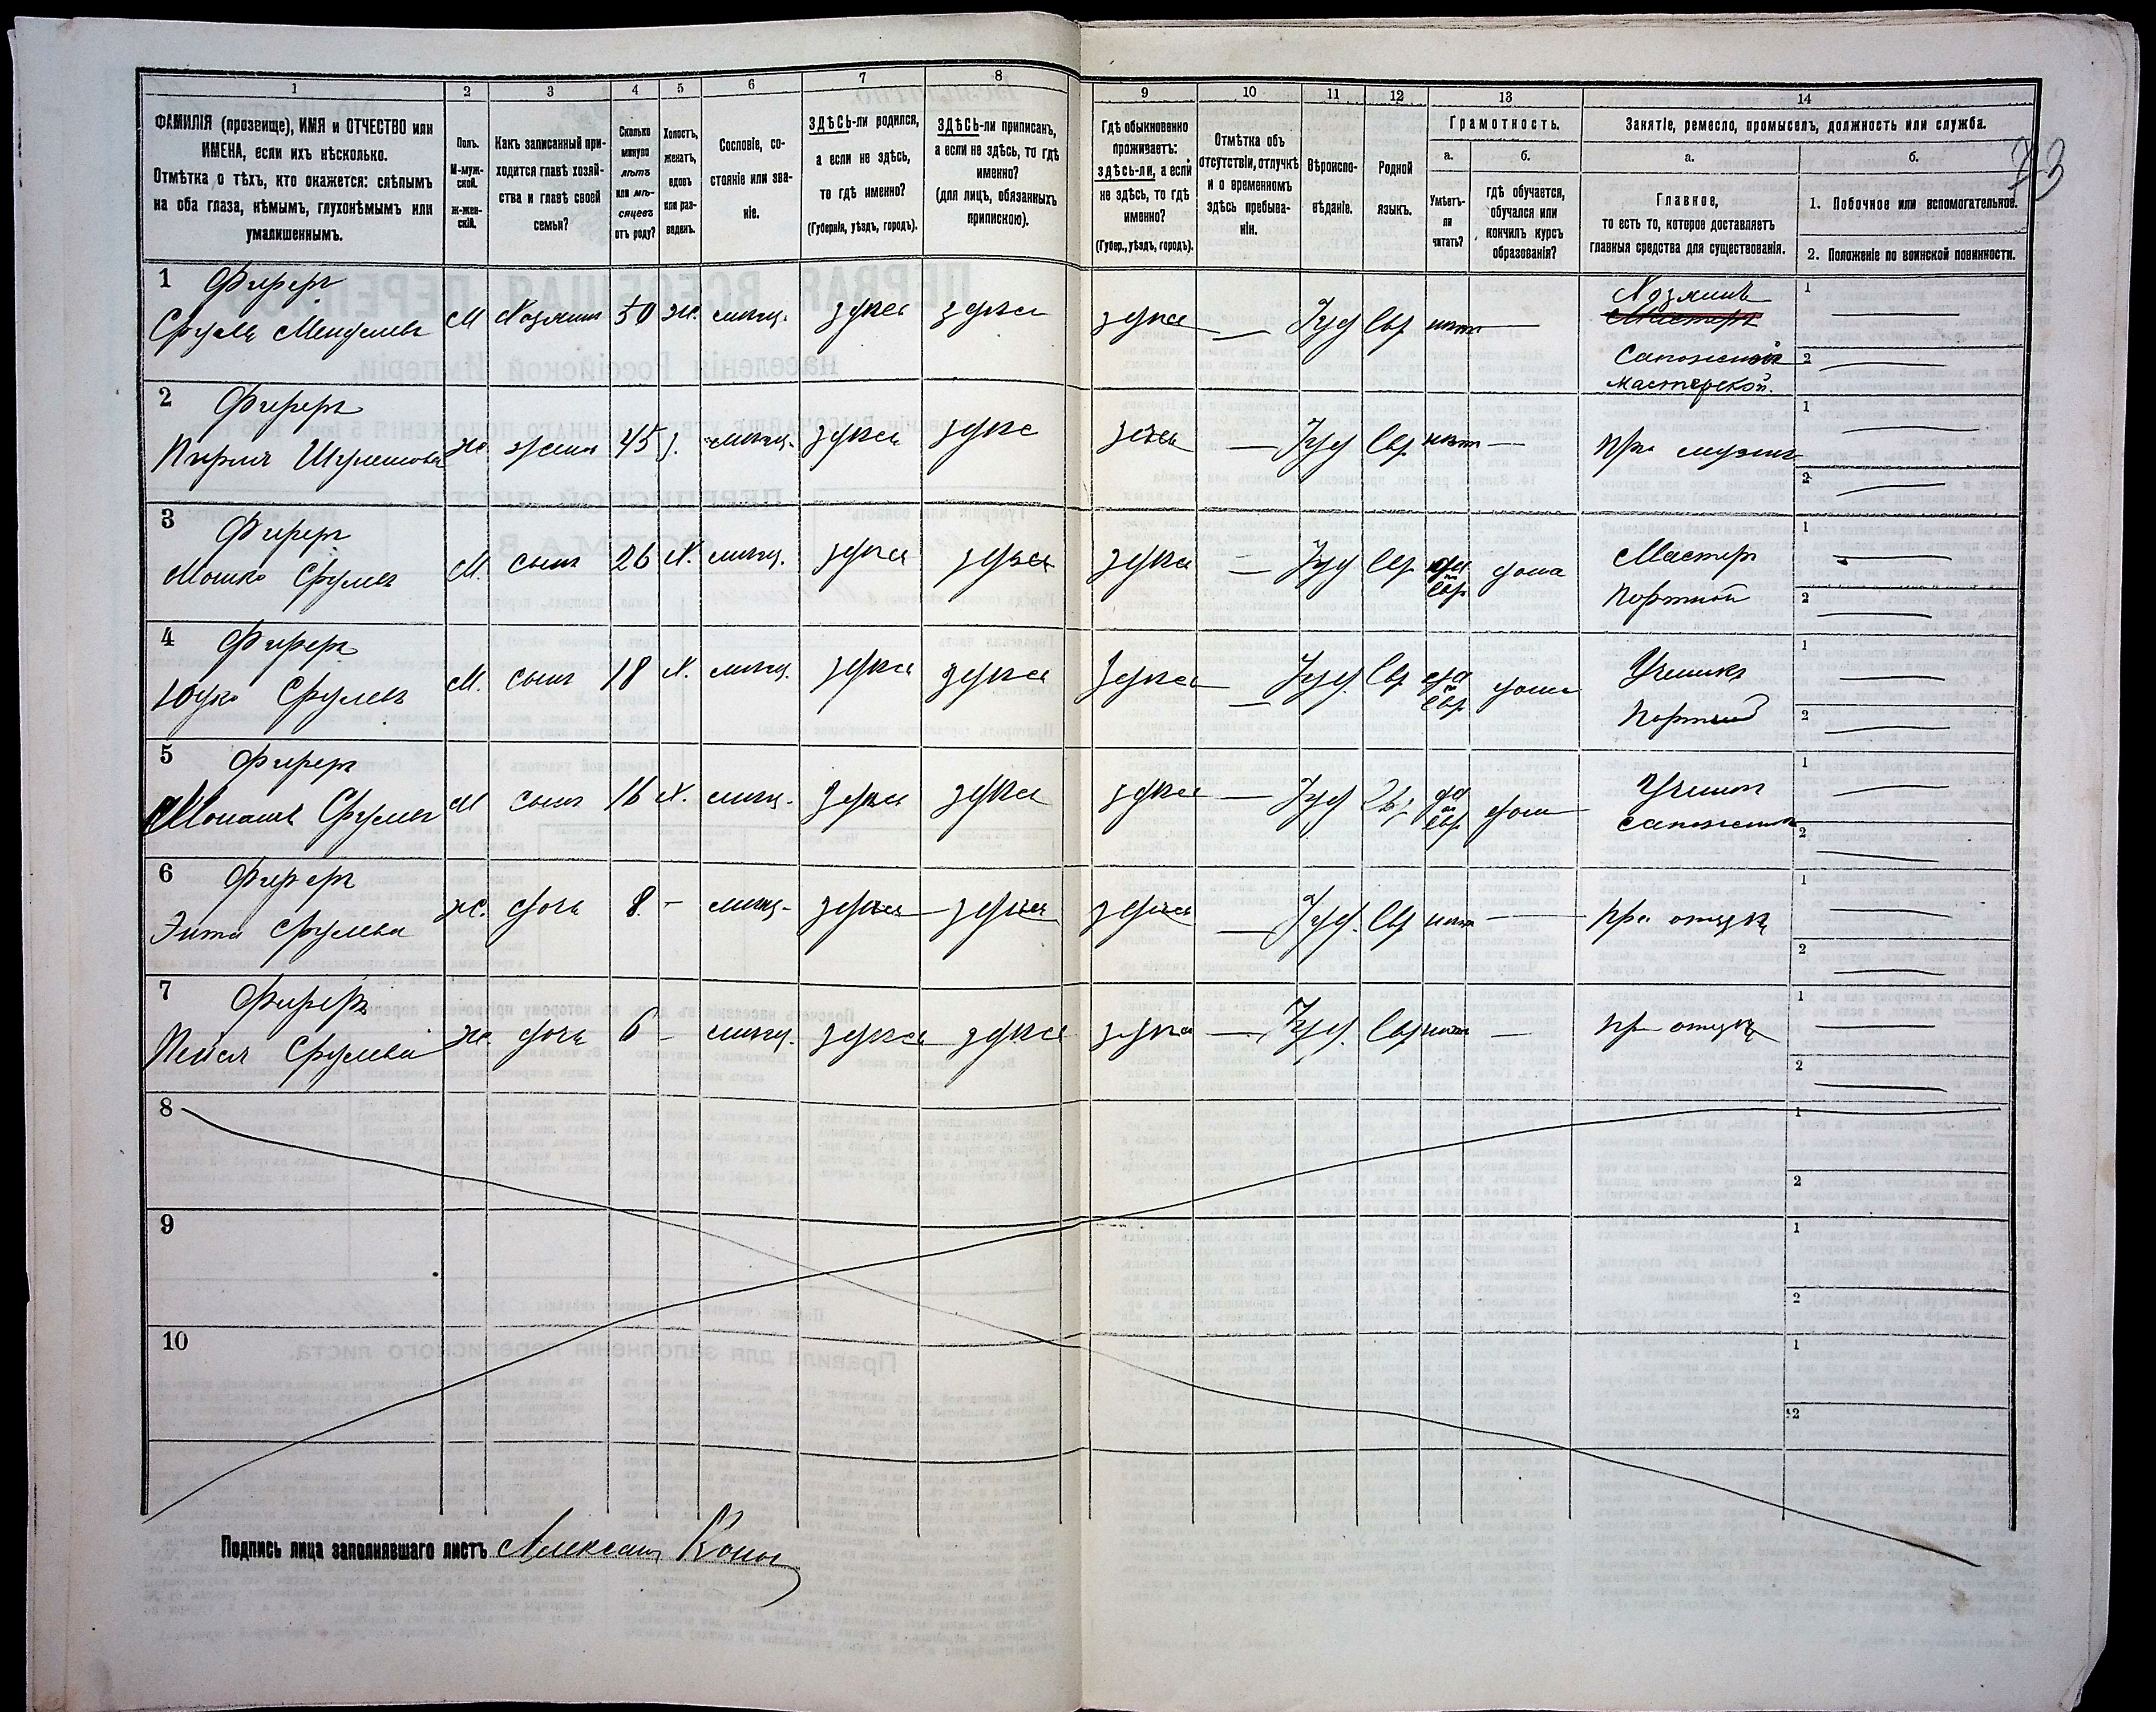 1 2 3 4 5 6 7 8 9 10 11 12 13 14
ФАМИЛІЯ (прозвище), ИМЯ и ОТЧЕСТВО или
ИМЕНА, если ихъ нѣсколько.
Отмѣтка о тѣхъ, кто окажется: слѣпымъ
на оба глаза, нѣмымъ, глухонѣмымъ или
умалишеннымъ.
Полъ.
М-муж-
ской.
ж-жен-
скій.
Какъ записанный при-
ходится главѣ хозяй-
ства и главѣ своей
семьи?
Сколько
минуло
лѣтъ
или мѣ-
сяцевъ
отъ роду?
Холостъ,
женатъ,
вдовъ
или раз-
веденъ.
Сословіе, со-
стояніе или зва-
ніе.
ЗДѢСЬ-ли родился,
а если не здѣсь,
то гдѣ именно?
(Губернія, уѣздъ, городъ).
ЗДѢСЬ-ли приписанъ,
а если не здѣсь, то гдѣ
именно?
(для лицъ, обязанныхъ
припискою).
Гдѣ обыкновенно
проживаетъ:
здѣсь-ли, а если
не здѣсь, то гдѣ
именно?
(Губер., уѣздъ, городъ).
Отмѣтка объ
отсутствіи, отлучкѣ
и о временномъ
здѣсь пребыва-
ніи.
Вѣроиспо-
вѣданіе.
Родной
языкъ.
Грамотность.
а.
Умѣетъ-
ли
читать?
б.
гдѣ обучается,
обучался или
кончилъ курсъ
образованія?
Занятіе, ремесло, промыселъ, должность или служба.
а.
Главное,
то есть то, которое доставляетъ
главныя средства для существованія.
б.
1. Побочное или вспомогательное.
2. Положеніе по воинской повинности.
73
1 Фиреръ
Сруль Менделевъ М Хозяинъ 50 ж. мѣщ. здѣсь здѣсь здѣсь — Іуд Евр нѣтъ —
Хозяинъ
Мастеръ
Сапожной
мастерской.
1 —
2 —
2 Фиреръ
Перля Шулимова ж жена 45 з. мѣщ. здѣсь здѣсь здѣсь — Іуд Евр нѣтъ — при мужѣ
1 —
2 —
3 Фиреръ
Мошко Срулев М. сынъ 26 Х. мѣщ. здѣсь здѣсь здѣсь — Іуд Евр да
по
Евр дома
Мастеръ
Портной
1 —
2 —
4 Фиреръ
Юдко Срулевъ М. сынъ 18 Х. мѣщ. здѣсь здѣсь здѣсь — Іуд. Евр да
по
Евр дома
Ученикъ
Портной
1 —
2 —
5 Фиреръ
Монашъ Срулевъ М сынъ 16 Х. мѣщ. здѣсь здѣсь здѣсь — Іуд Евр да
по
Евр дома
Ученик
сапожника
1 —
2 —
6 Фиреръ
Энта Срулева ж. дочь 8. — мѣщ. здѣсь здѣсь здѣсь — Іуд. Евр нѣтъ — при отцѣ
1 —
2 —
7 Фиреръ
Пейся Срулева ж. дочь 6 — мѣщ. здѣсь здѣсь здѣсь — Іуд. Евр нѣтъ — при отцѣ
1 —
2 —
8
1
2
9
1
2
10
1
2
Подпись лица заполнявшаго листъ